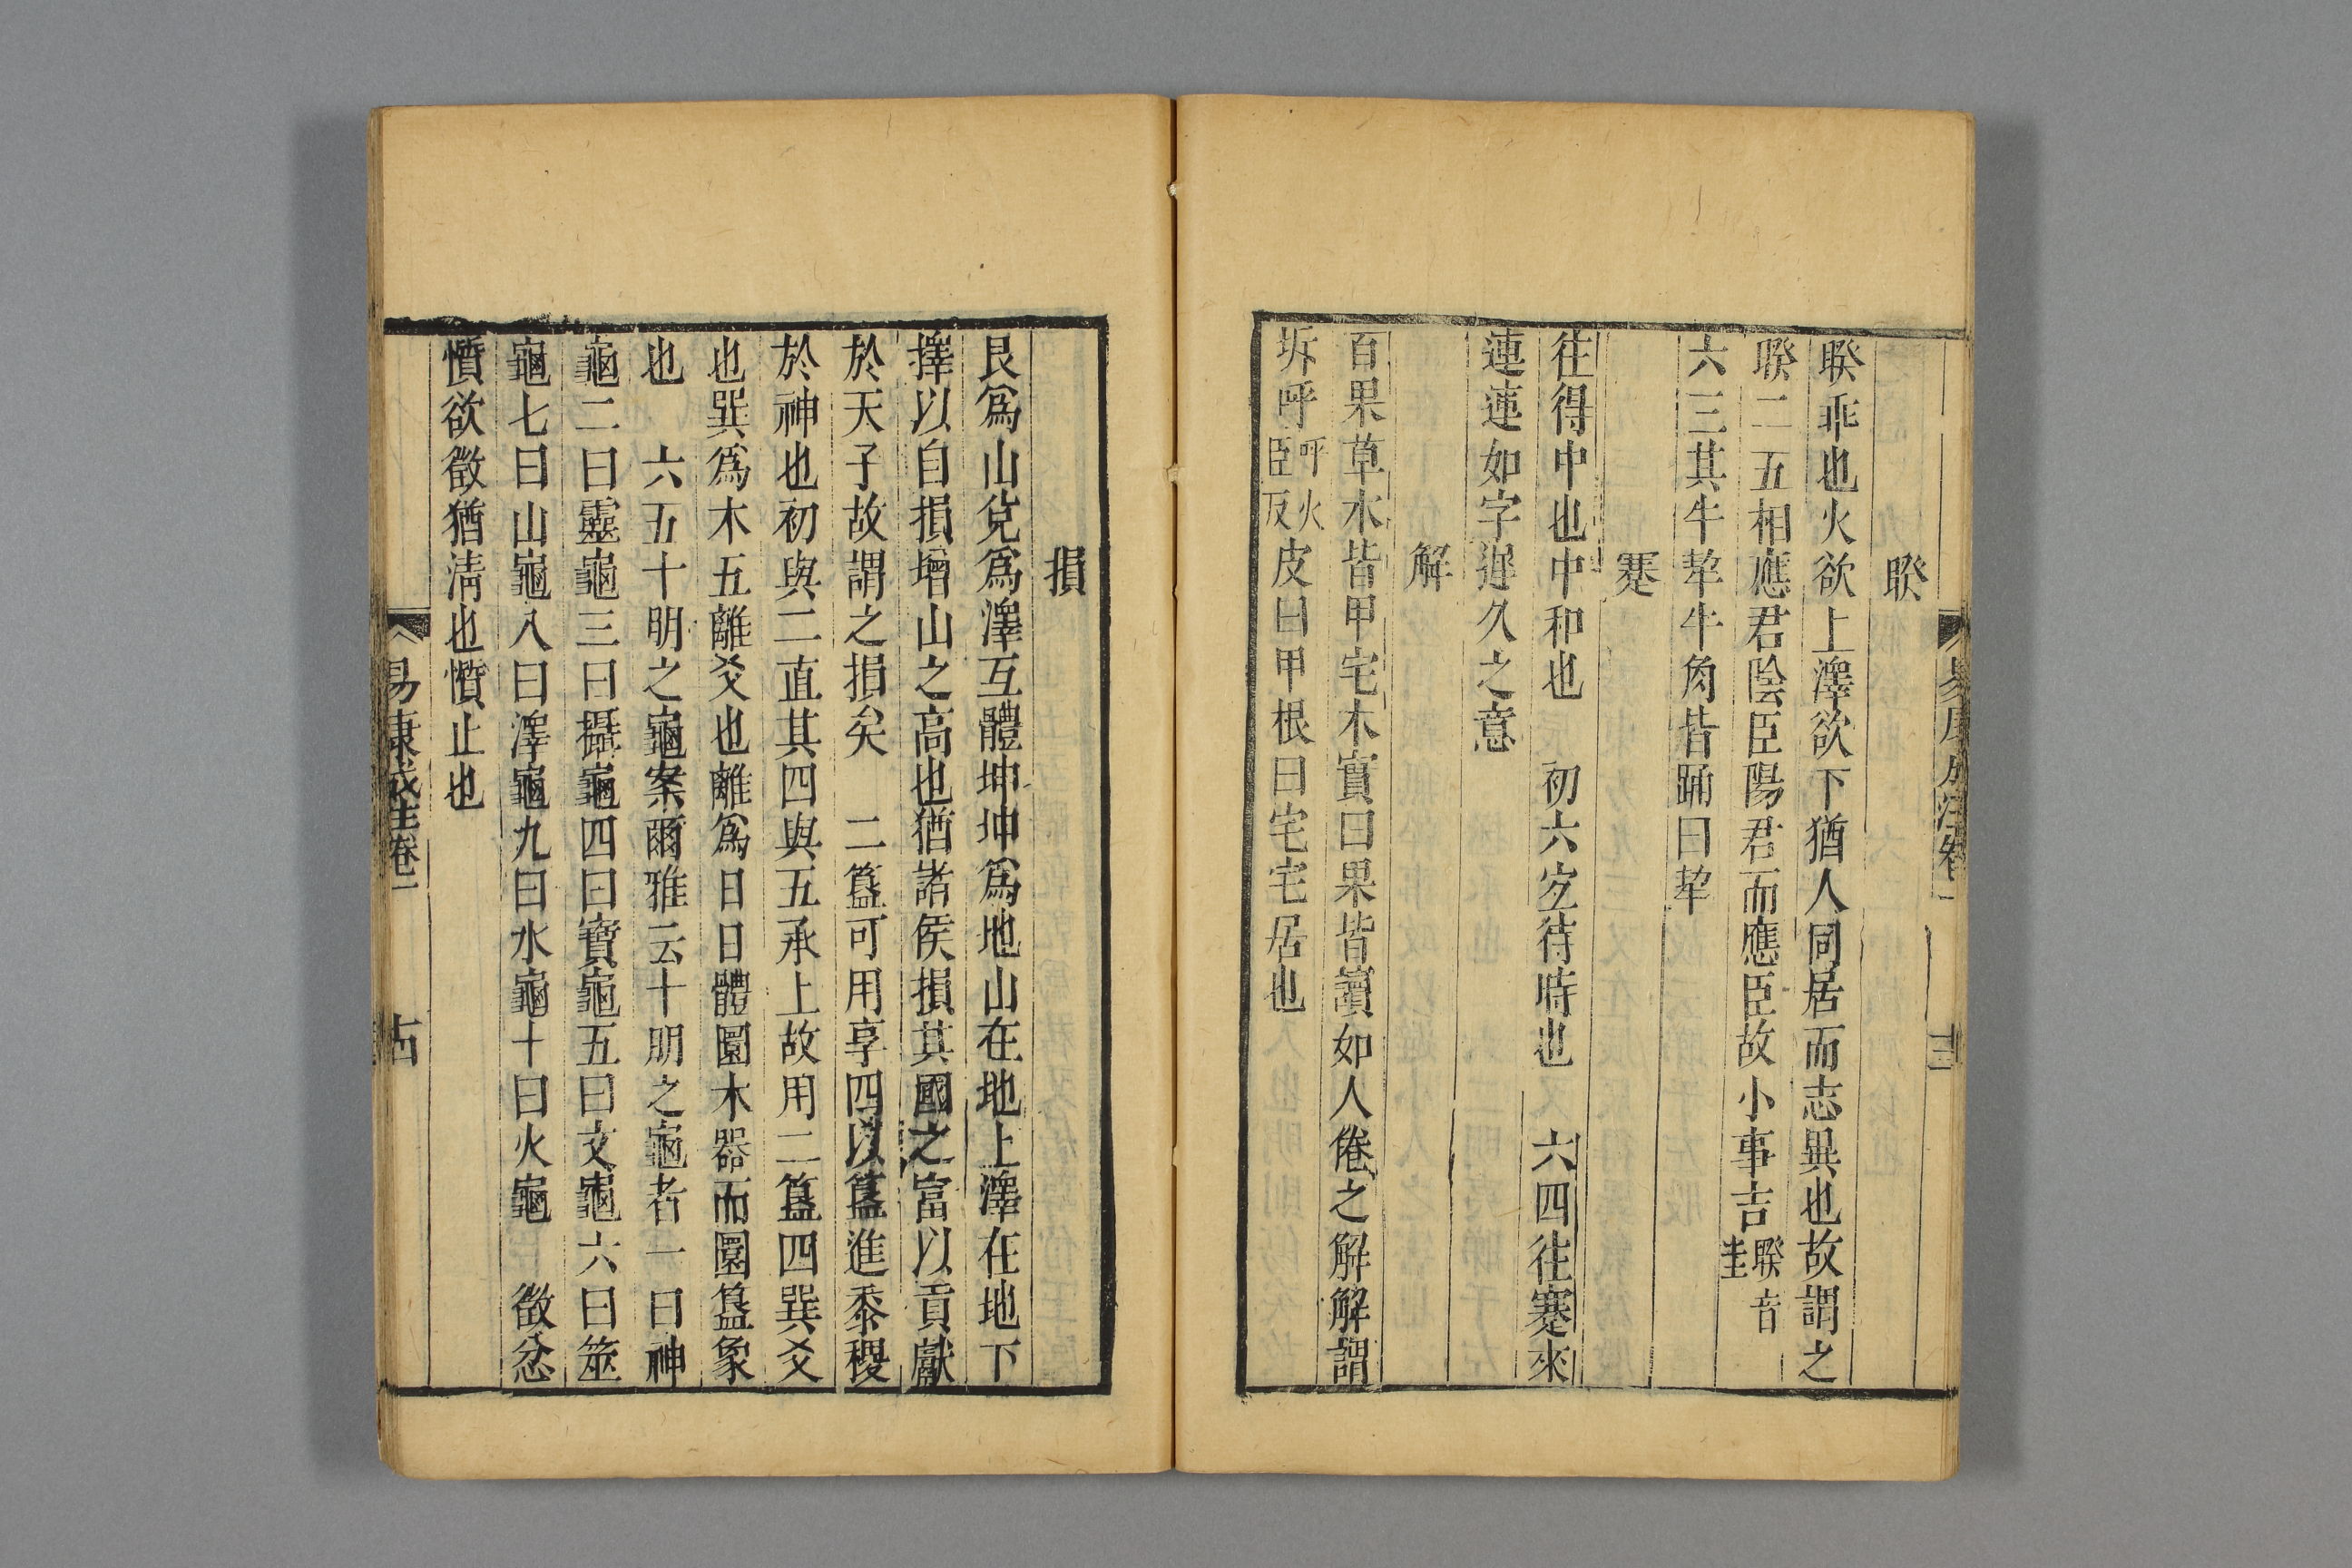 睽
睽乖也火欲上澤欲下猶人同居而志異也故謂之
睽二五相應君陰臣陽君而應臣故小事吉睽音圭
六三其牛挈牛角皆踊曰挈
蹇
往得中也中和也　初六宐待時也　六四往蹇來
連連如字遲久之意
解
百果草木皆甲宅木實曰果皆讀如人倦之解解謂
坼呼呼火臣反皮曰甲根曰宅宅居也
損
艮爲山兌爲澤互體坤坤爲地山在地上澤在地下
擇以自損增山之高也猶諸侯損其國之富以貢獻
於天子故謂之損矣　二簋可用享四以簋進黍稷
於神也初與二直其四與五承上故用二簋四巽爻
也巽爲木五離爻也離爲日日體圜木器而圜簋象
也　六五十朋之龜案爾雅云十朋之龜者一曰神
龜二曰靈龜三曰攝龜四曰寶龜五曰文龜六曰筮
龜七曰山龜八曰澤龜九曰水龜十曰火龜　徵忿
懫欲徵猶清也懫止也
易康成注卷一
古